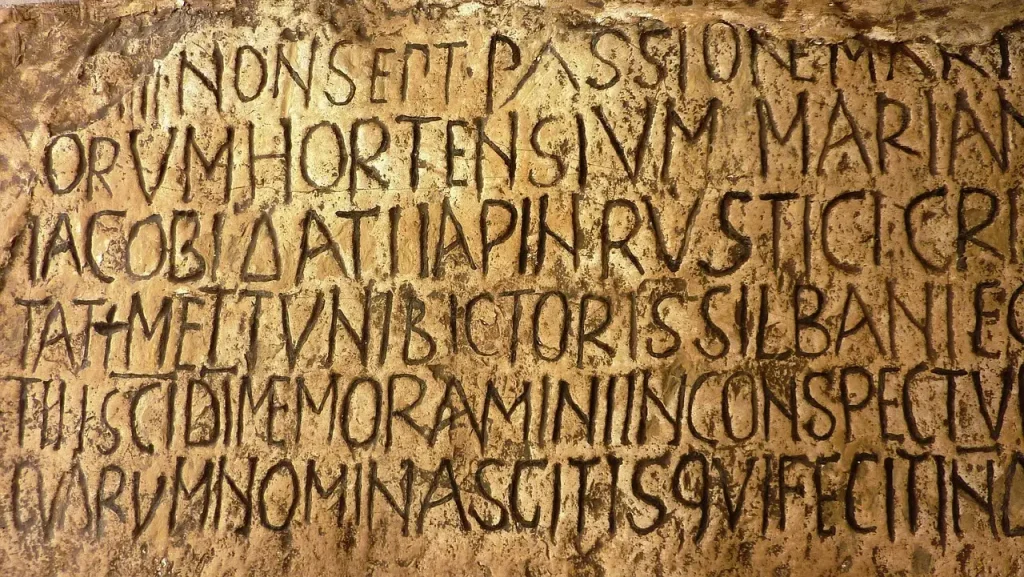 IIII NONSEPT·PASSIONEMARTVR
ORVMHORTENSIVM MARIAN
IACOBI DATI IAPIN RVSTICI CRI
TATI+METTVNIBICTORIS SILBANI EG
TIIISCIDIMEMORAMINIINCONSPECTV
QVARVMNOMINASCITISQVIFECITIND